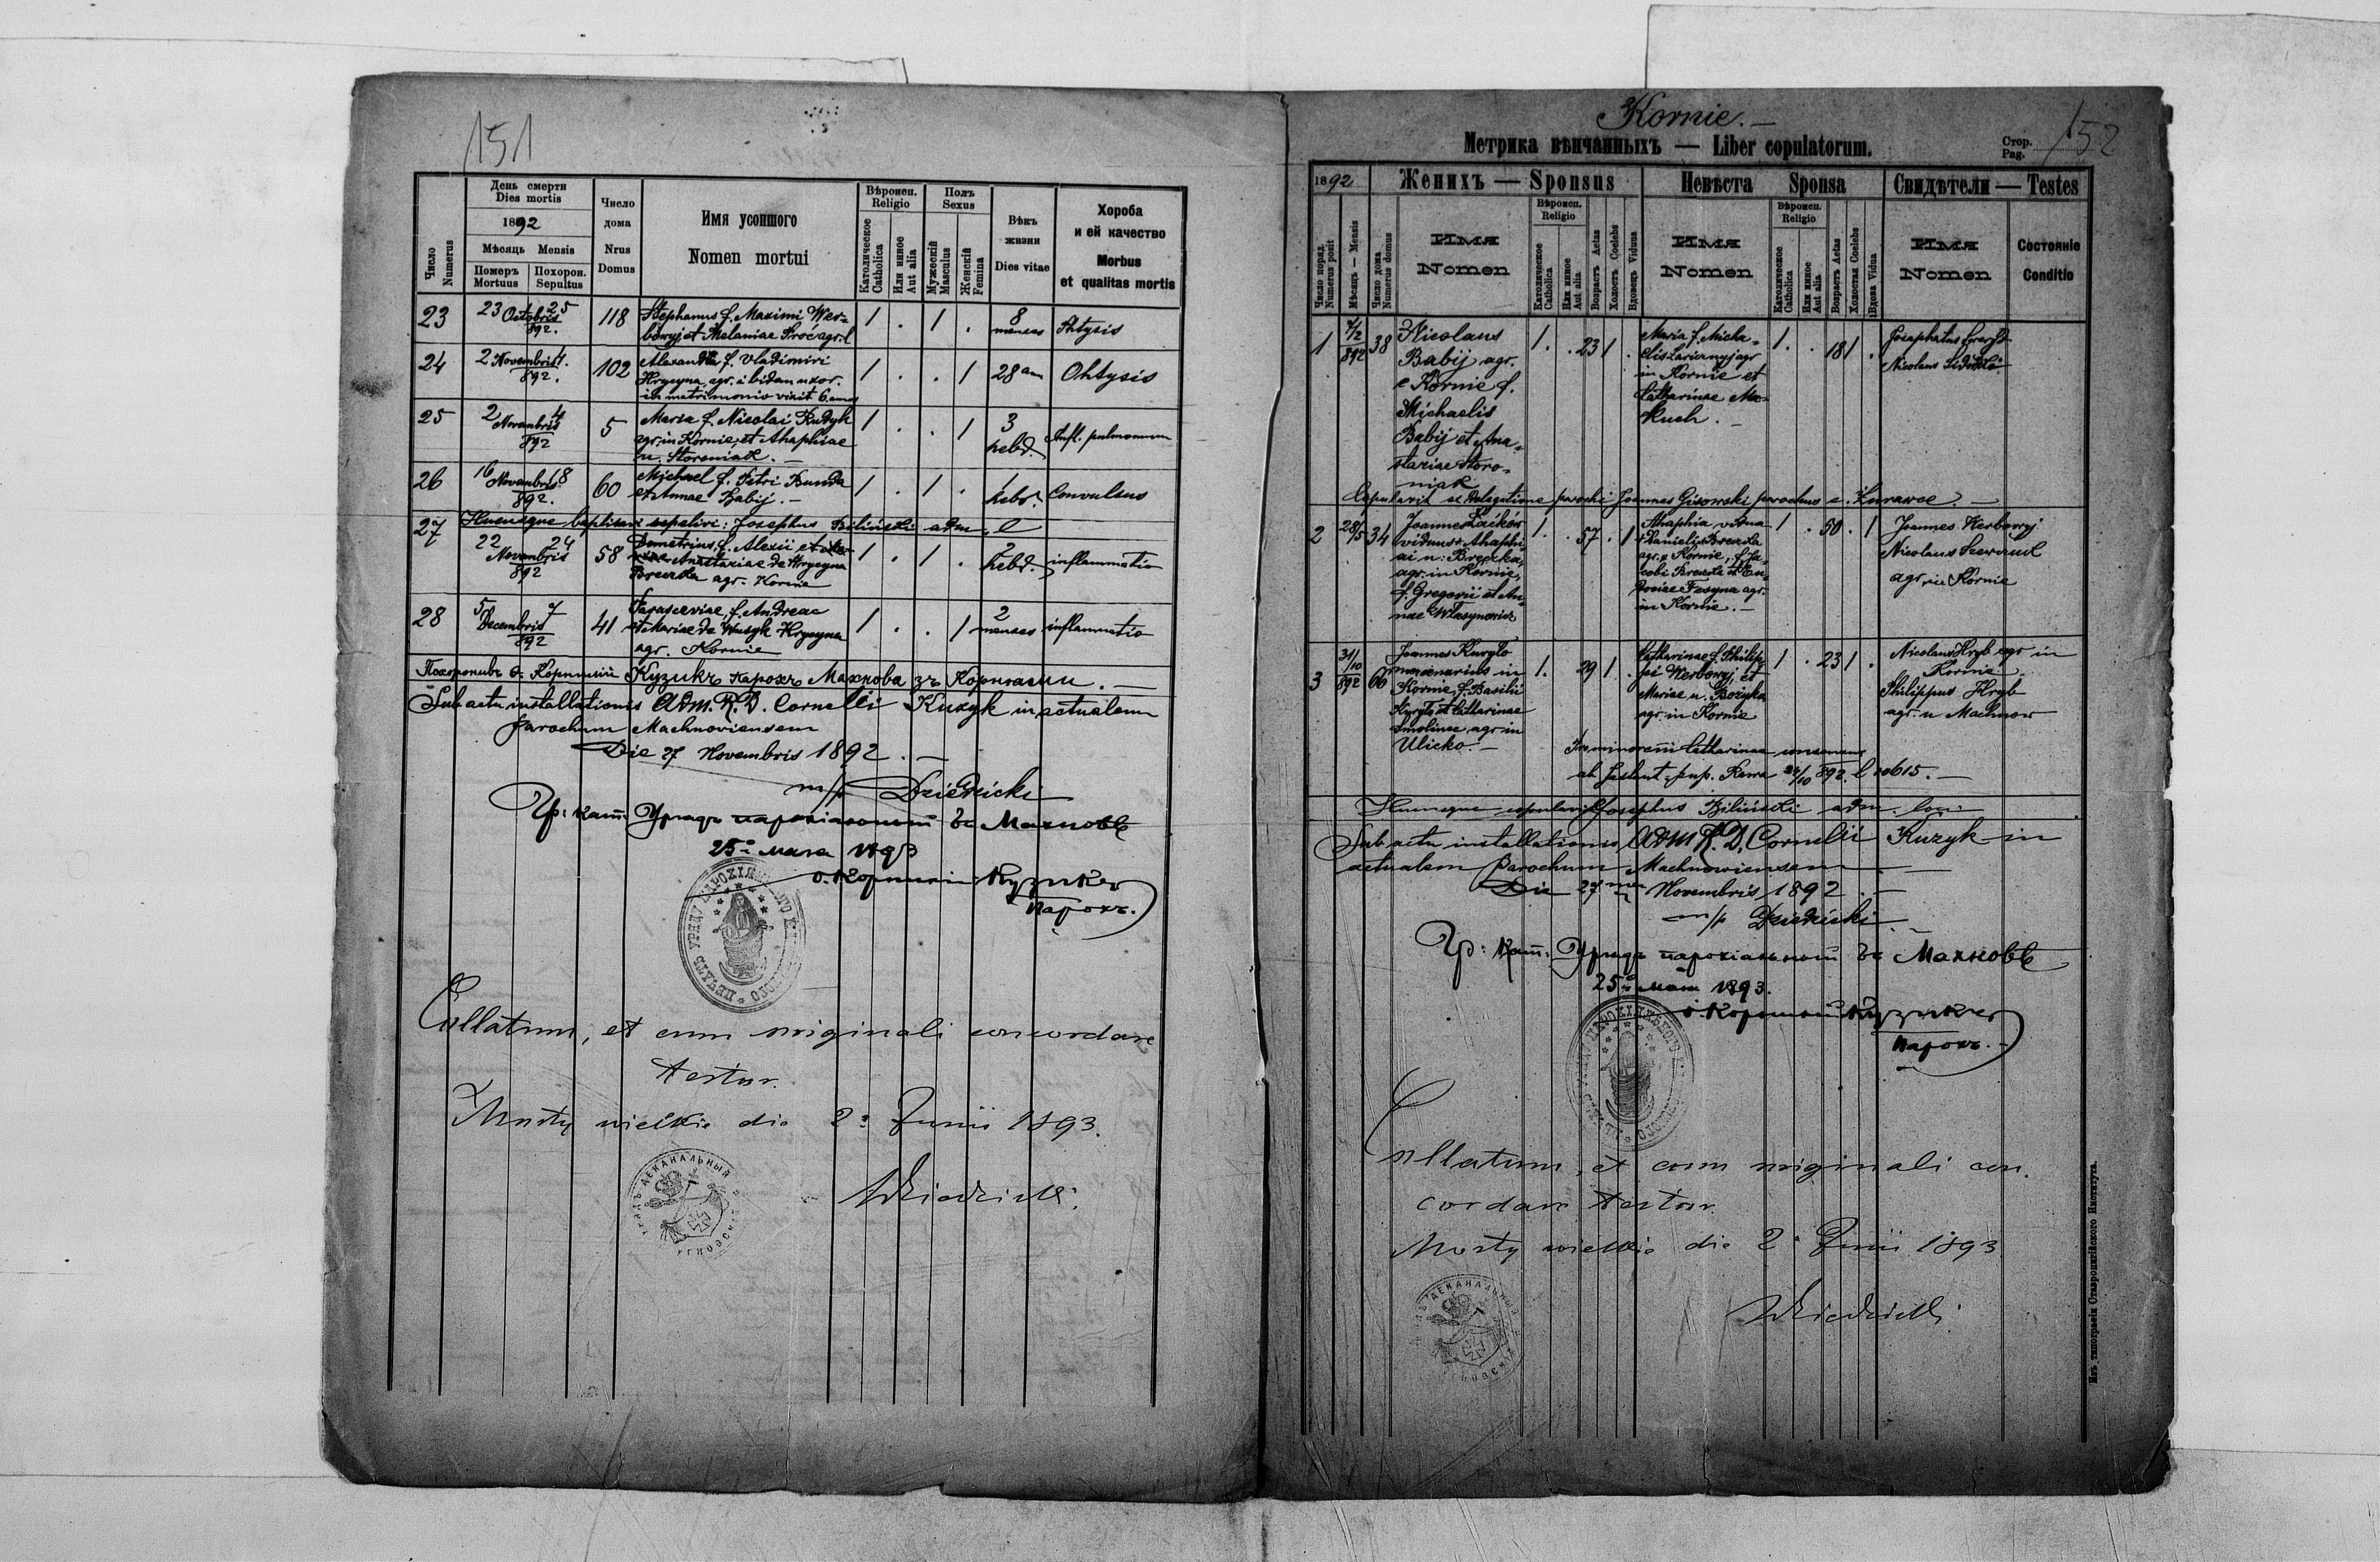 151
День смерти
Dies mortis
1892
Мѣсяць Mensis
Померъ Mortuus
Похорон. Sepultus
Число Numerus
Число дома
Nrus Domus
Имя усопшого
Nomen mortui
Вѣроисп.
Religio
Католическое Catholica
Или инное Aut alia
Полъ
Sexus
Мужескій Masculus
Женскій Femina
Вѣкъ жизни
Dies vitae
Хороба
и ей качество
Morbus
et qualitas mortis
23 23 Octobris 25 892. 118 Stephanus f. Maximi Wer=
bowyj et Melaniae agr. 1 . 1 . 8 menses Phtysis
24 2 Novembris 4. 892. 102 Alexandra f. Vladimiri
Hrycyna agr. ibidem uxor.
in matrimonio vixit 6 annos 1 . . 1 28 ann Phtysis
25 2 Novembris 4 892 5 Maria f. Nicolai Kudyk
agr. in Kornie, et Ahaphiae
n. Storoniak. 1 . . 1 3 hebd. Infl. pulmonum
26 16 Novembris 18 892. 60 Michael f. Petri Bunda
et Annae Babij. 1 . 1 . 1 hebd. Convulsus
Hucusque baptisavi sepelivi: Josephus Biliński adm.
27 22 Novembris 24 892 58 Demetrius f. Alexii et
Anastasiae de Hrycyna
agr. Kornie 1 . 1 . 2 hebd. inflammatio
28 5 Decembris 7 892 41 Parasceviae f. Andreae
et Mariae de Hrycyna
agr. Kornie 1 . . 1 2 menses inflammatio
Похоронивъ о. Корнилій Кузикъ парохъ Махнова зъ Корнями.
Sub actu installationis Adm. R. D. Cornelii Kuzyk in actualem
parochum Machnoviensem
Die 27 Novembris 1892.
m/p Dziedzicki
Гр: кат: Урядъ парохіальный въ Махновѣ
25го мая 1893
о. Корнилій Кузикъ
парохъ.
Collatum, et cum originali concordare
testor.
Mosty wielkie die 2a Junii 1893.
Dziedzicki
Kornie.
Метрика вѣнчанныхъ — Liber copulatorum.
Стор.
Pag. 152
1892
Женихъ — Sponsus
Невѣста Sponsa
Свидѣтели — Testes
Число поряд. Numerus posit
Мѣсяць — Mensis
Число дома Numerus domus
Имя
Nomen
Вѣроисп.
Religio
Католическое Catholica
Или инное Aut alia
Возрастъ Aetas
Холостъ Coelebs
Вдовецъ Viduus
Имя
Nomen
Вѣроисп.
Religio
Католическое Catholica
Или инное Aut alia
Возрастъ Aetas
Холостая Coelebs
Вдова Vidua
Имя
Nomen
Состояніе
Conditio
1 892 38 Nicolaus
Babij agr.
e Kornie f.
Michaelis
Babij et Ana=
stasiae Storo=
niak 1. . 23 1 . Maria f. Micha=
elis agr
in Kornie et
Catharinae Ma=
kuch. 1. . 18 1 . Josaphatus
Nicolaus
Copulavit ex delegatione parochi Joannes Gisowski parochus e Kurawce.
2 28/5 34 Joannes
viduus + Ahaphi=
ae n: Breczka,
agr. in Kornie,
f. Gregorii et An=
nae 1. . 57 . 1 Ahaphia vidua
+ Danielis
agr. e Kornie, f. Ja=
cobi et
agr.
in Kornie. 1 . 50 . 1 Joannes Werbowyj
Nicolaus
agr. in Kornie
3 31/10 892 60 Joannes Kuryło
mercenarius in
Kornie, f. Basilii
Kuryło et Catharinae
agr in
Ulicko. 1. 29 1 . Catharinae f. Philip=
pi Werbowy, et
Mariae n.
agr. in Kornie 1 . 23 1 . Nicolaus Hryb agr in
Kornie.
Philippus Hryb
agr. n Machnow
Pro minorenni Catharinae consensus
Rawa 24/10 892
Hucusque copulavit Josephus Biliński adm. loci
Sub actu installationis Adm R. D. Cornelii Kuzyk in
actualem parochum Machnoviensem
Die 27 Novembris 1892
m/p Dziedzicki
Гр: Кат: Урядъ парохіальный въ Махновѣ
25го мая 1893.
о. Корнилій Кузикъ
парохъ.
Collatum, et cum originali con
cordare testor
Mosty wielkie die 2a Junii 1893
Dziedzicki
Изъ типографіи Ставропигійского Института.